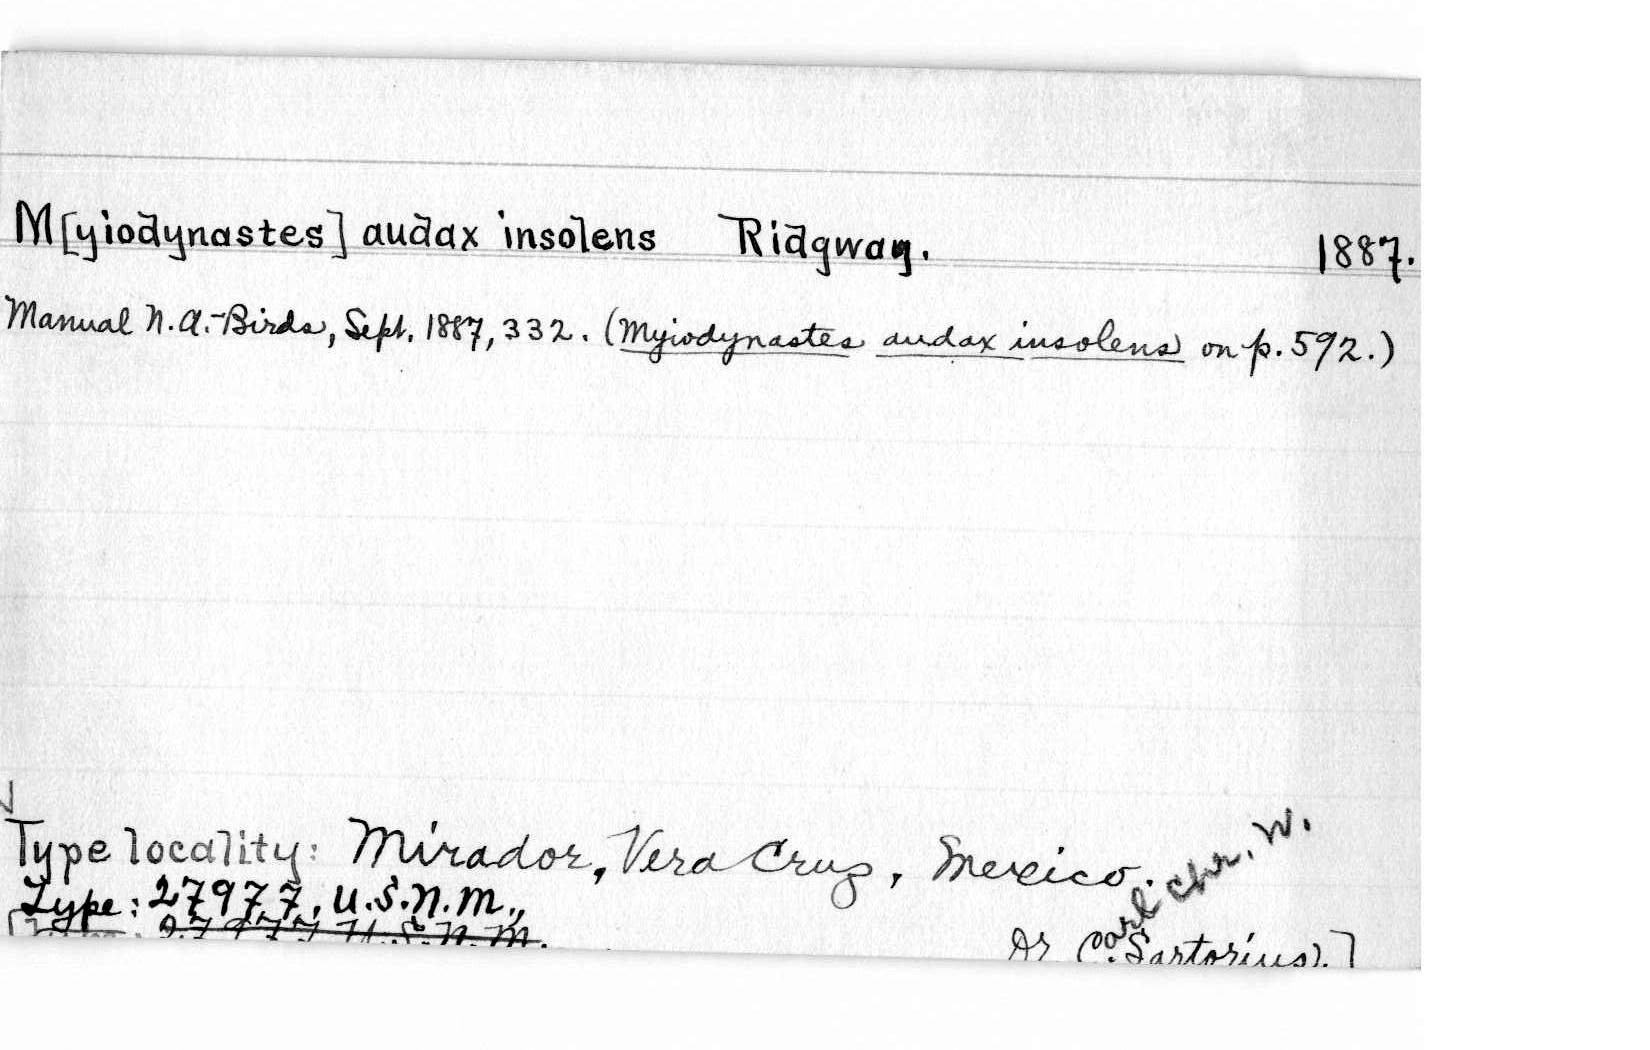 M[yiodynastes] audax insolens Ridgway. 1887.
Manual N.A. Birds, Sept. 1887, 332. (Myiodynastes audax insolens on p. 592.)
Type locality: Mirador, Vera Cruz, Mexico.
Carl Chr. W.
Type: 27977, U.S.N.M.,
27977 U.S.N.M.
Dr C. Sartorius).]